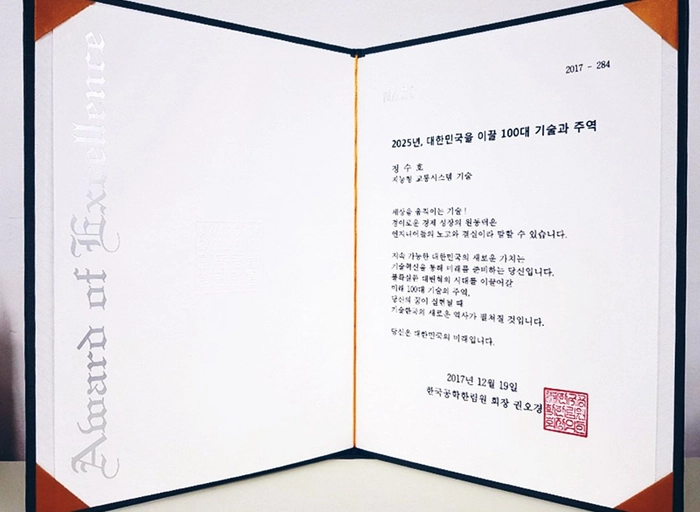 Award of Excellence
2017 - 284
2025년, 대한민국을 이끌 100대 기술과 주역
정 수 호
지능형 교통시스템 기술
세상을 움직이는 기술!
경이로운 경제 성장의 원동력은
엔지니어들의 노고와 결실이라 말할 수 있습니다.
지속 가능한 대한민국의 새로운 가치는
기술혁신을 통해 미래를 준비하는 당신입니다.
불확실과 대변혁의 시대를 이끌어갈
미래 100대 기술의 주역,
당신의 꿈이 실현될 때
기술한국의 새로운 역사가 펼쳐질 것입니다.
당신은 대한민국의 미래입니다.
2017년 12월 19일
한국공학한림원 회장 권오경